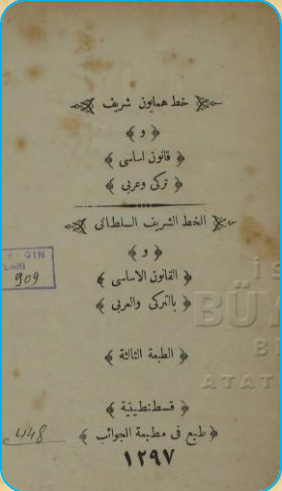 خط همايون شريف
﴿ و ﴾
﴿ قانون اساسى ﴾
﴿ تركى وعربى ﴾
الخط الشريف السلطانى
﴿ و ﴾
﴿ القانون الاساسى ﴾
﴿ بالتركى والعربى ﴾
GIN
LARI
909
﴿ الطبعة الثالثة ﴾
﴿ قسطنطينية ﴾
448
﴿ طبع فى مطبعة الجوائب ﴾
١٢٩٧
BÜY
ATAT